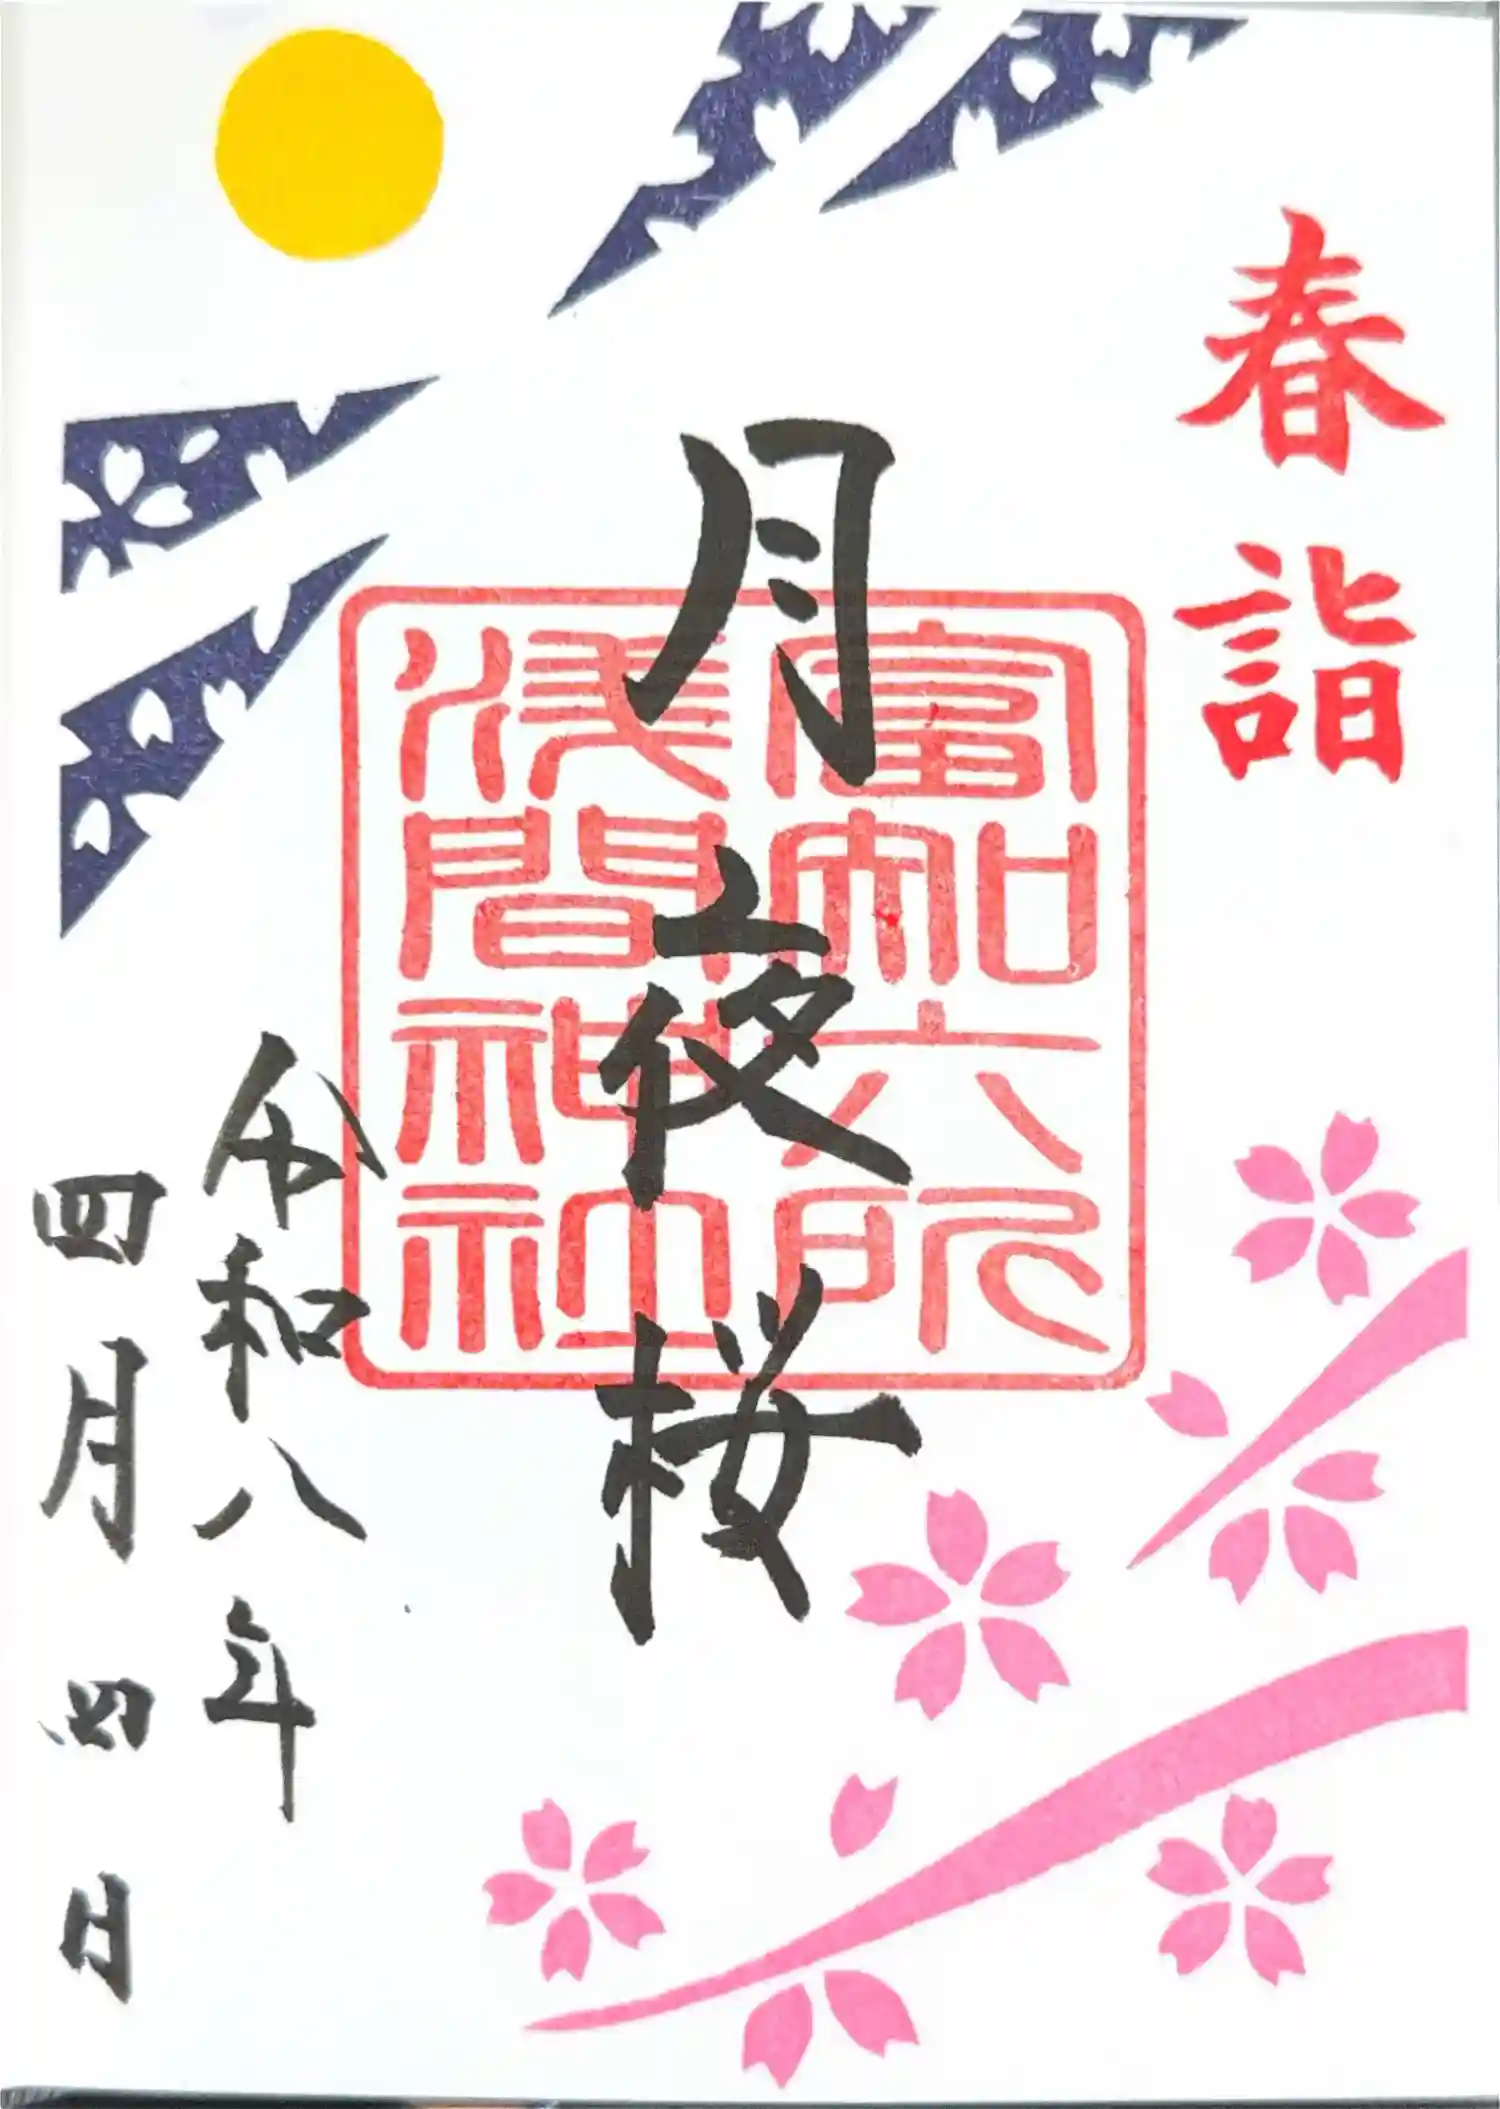 春詣
月夜桜
富知六所
浅間神社
令和八年
四月四日